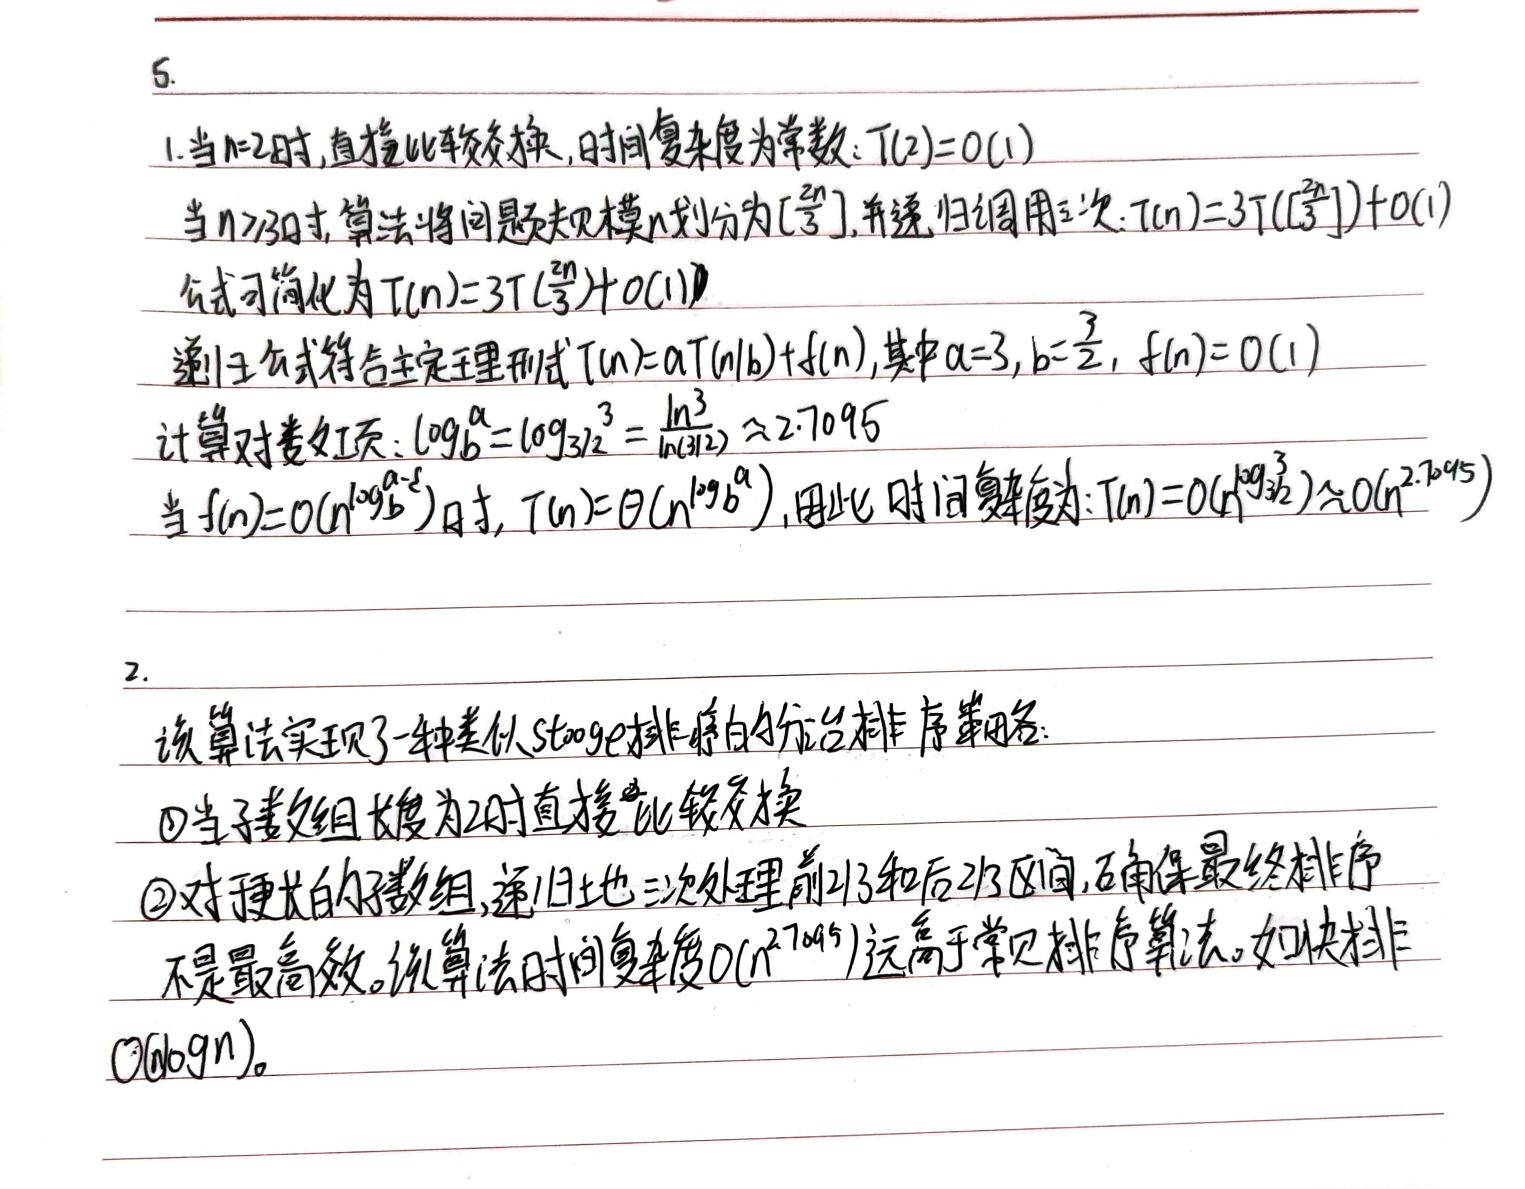 5.
1.当n=2时,直接比较交换,时间复杂度为常数:T(2)=O(1)
当n≥3时,算法将问题规模n划分为[2n/3],并递归调用三次:T(n)=3T([2n/3])+O(1)
公式可简化为T(n)=3T(2n/3)+O(1)
递归公式符合主定理形式T(n)=aT(n/b)+f(n),其中a=3,b=3/2,f(n)=O(1)
计算对数项:log_b^a=log_{3/2}^3=ln3/ln(3/2)≈2.7095
当f(n)=O(n^{log_b^{a-ε}})时,T(n)=Θ(n^{log_b^a}),因此时间复杂度为:T(n)=O(n^{log_{3/2}^3})≈O(n^{2.7095})
2.
该算法实现了一种类似Stooge排序的分治排序策略:
①当子数组长度为2时直接比较交换
②对于更长的子数组,递归地三次处理前2/3和后2/3区间,确保最终排序
不是最高效。该算法时间复杂度O(n^{2.7095})远高于常见排序算法。如快排
O(nlogn)。